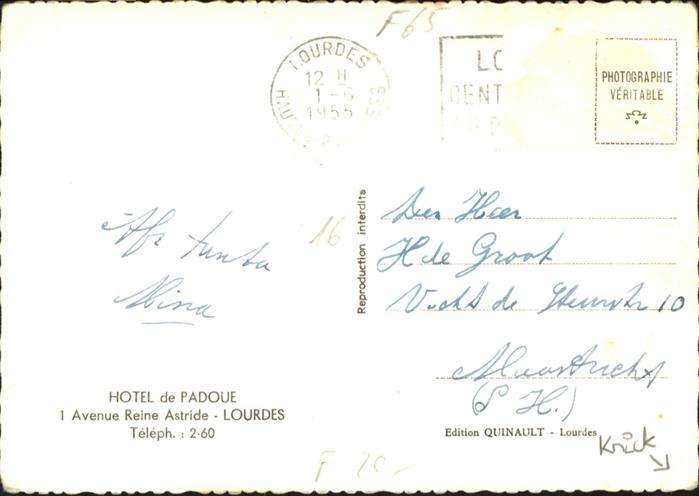 F 65
LOURDES
12 H
1-6
1955
LO
CENT
PHOTOGRAPHIE
VÉRITABLE
Afz tante
Mina
16
Reproduction interdite
Den Heer
H de Groot
10
Maastricht
(P H.)
HOTEL de PADOUE
1 Avenue Reine Astride - LOURDES
Téléph. : 2-60
Edition QUINAULT - Lourdes
Knick
F 10.-